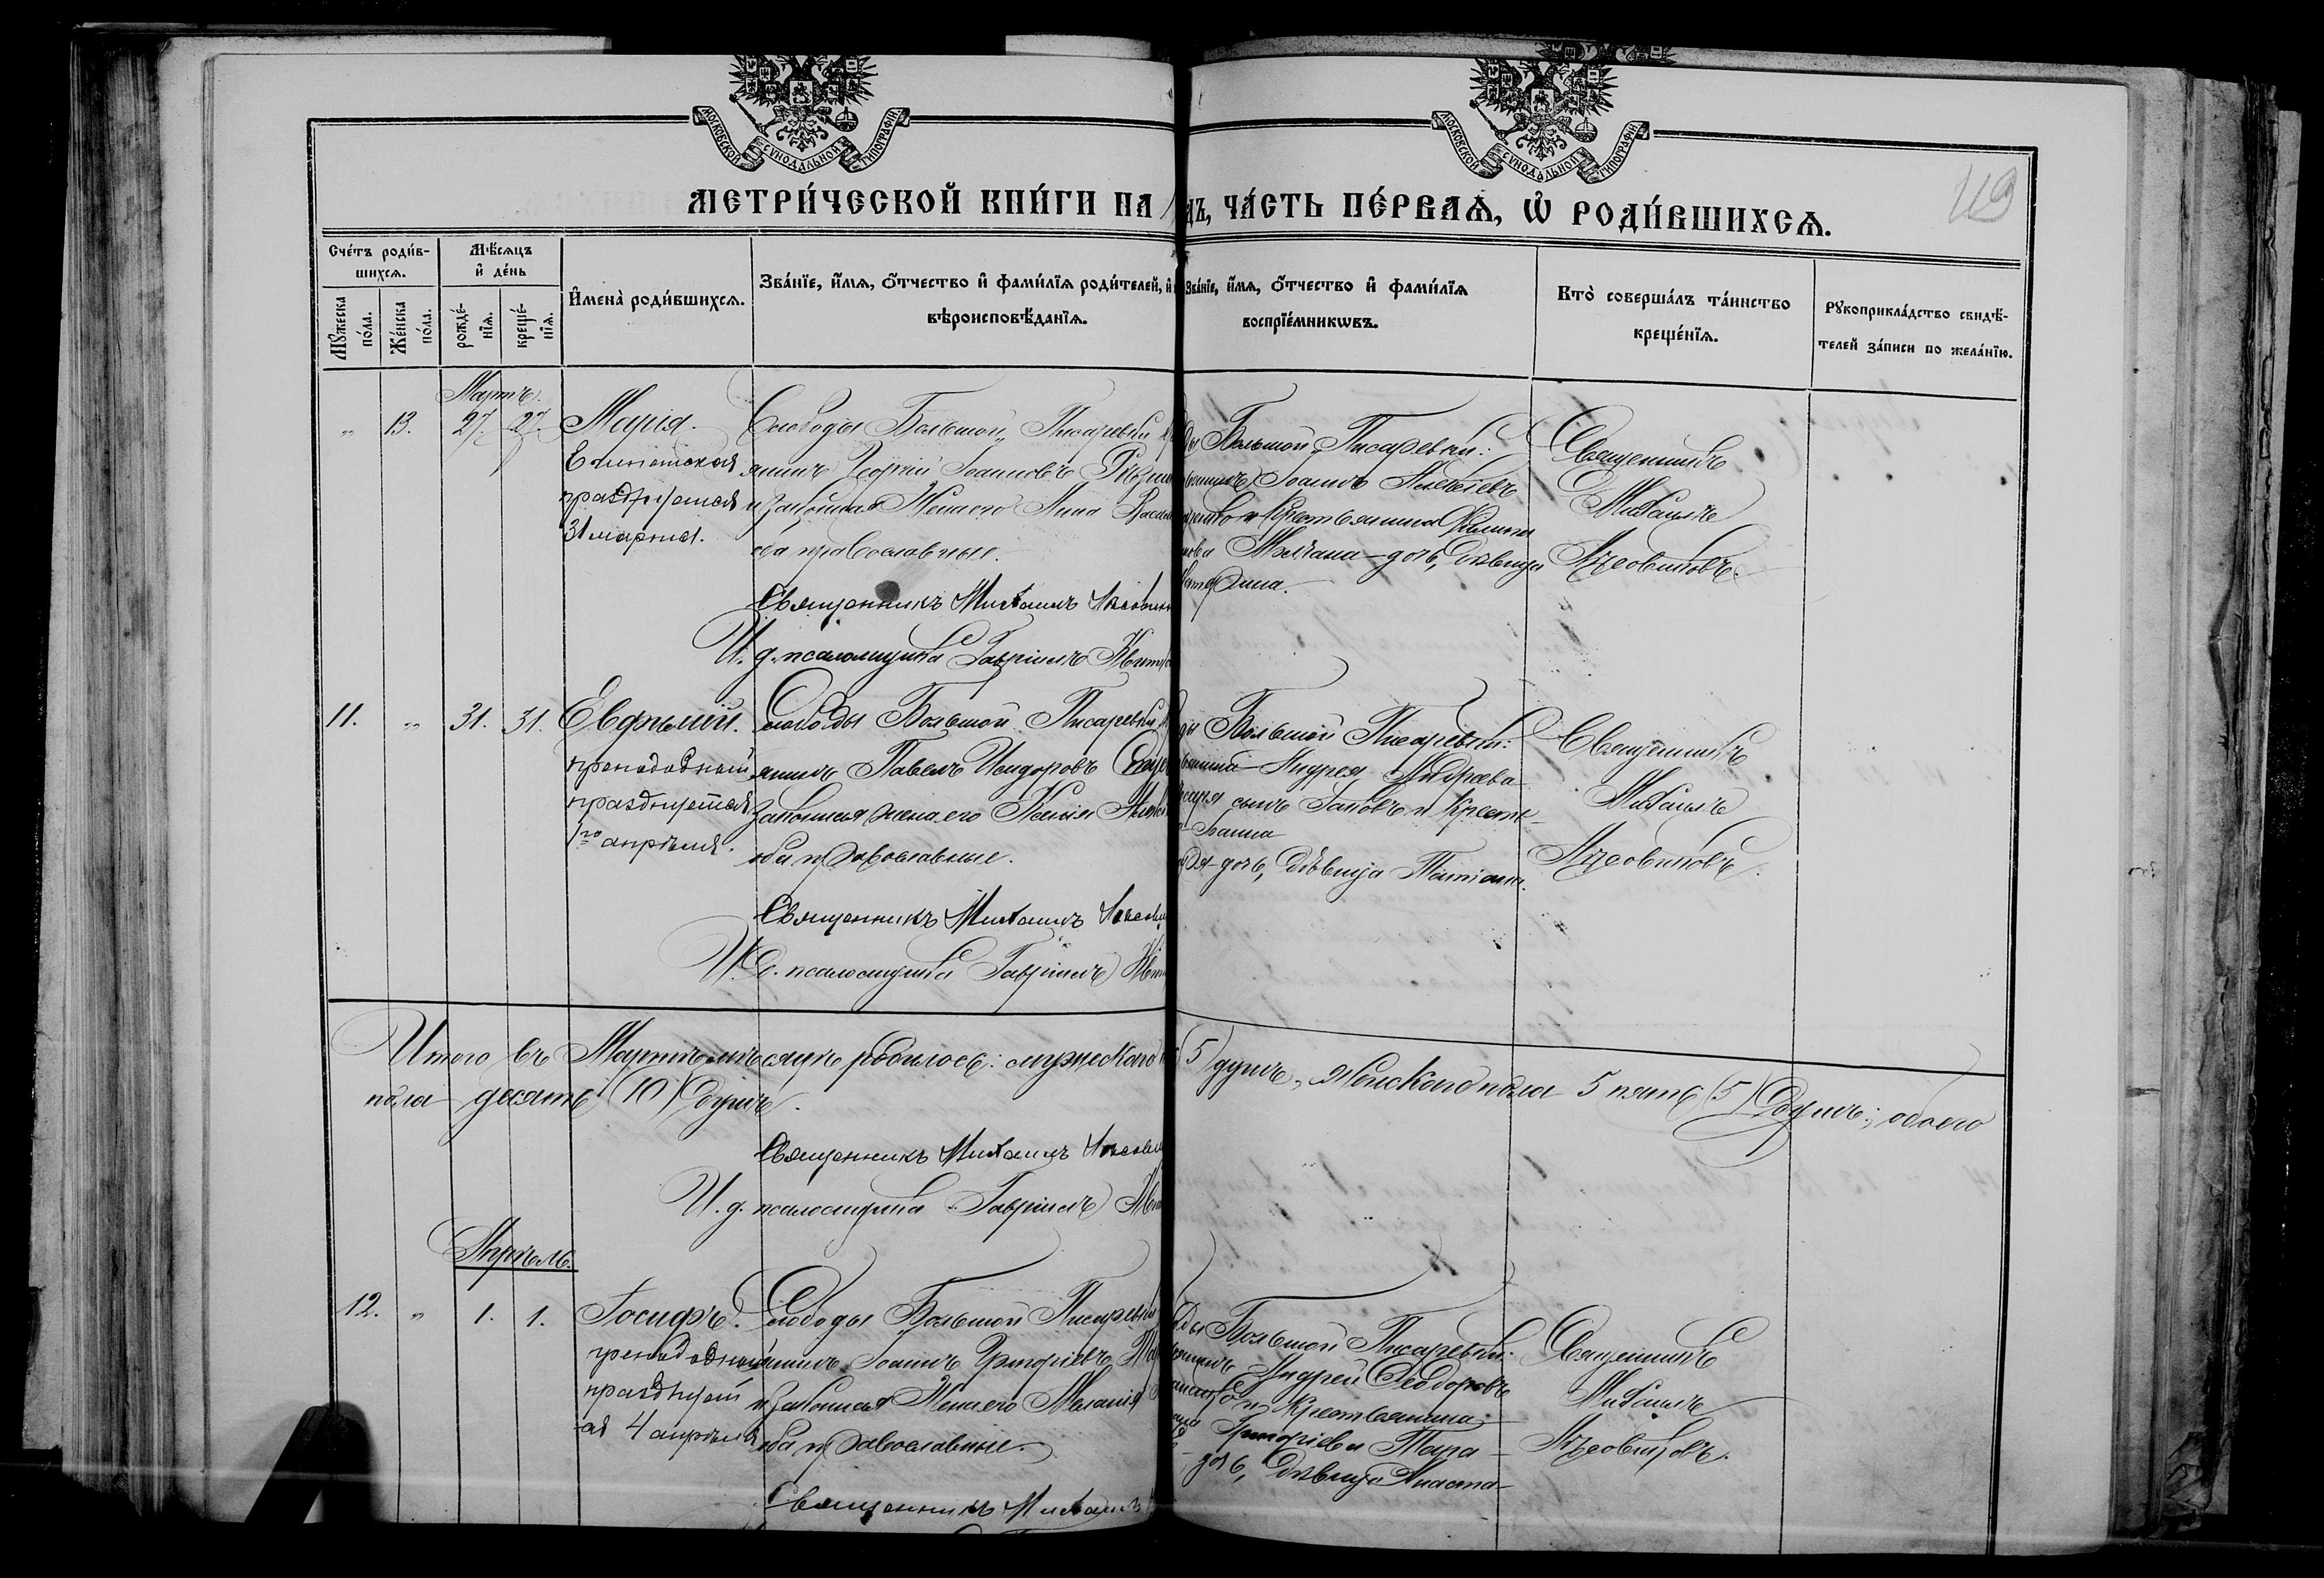 МОСКОВСКОЙ СѴНОДАЛЬНОЙ ТИПОГРАФІИ
МОСКОВСКОЙ СѴНОДАЛЬНОЙ ТИПОГРАФІИ
МЕТРИ́ЧЕСКОЙ КНИ́ГИ НА
ДЪ, ЧА́СТЬ ПЕ́РВАѦ, Ѡ҆ РОДИ́ВШИХСѦ.
119
Сче́тъ роди́в-
шихсѧ.
Мѣ́сѧцъ
и҆ де́нь
Мꙋ́жеска по́ла.
Же́нска по́ла.
рожде́-
нїѧ.
креще́-
нїѧ.
И҆мена̀ роди́вшихсѧ.
Зва́нїе, и҆́мѧ, ѻ҆́тчество и҆ фами́лїѧ роди́телей, и҆
вѣроисповѣ́данїѧ.
Зва́нїе, и҆́мѧ, ѻ҆́тчество и҆ фами́лїѧ
воспрїе́мникѡвъ.
Кто̀ соверша́лъ та́инство
креще́нїѧ.
Рꙋкоприкла́дство свидѣ́-
телей за́писи по жела́нїю.
Мартъ.
„ 13. 27. 27. Марія.
Египетская
празднуется
31 марта.
Слободы Большой Писаревки
янинъ Георгій Іоанновъ
и законная жена его Анна
оба православные.
Священникъ Михаилъ
И. д. псаломщика Гавріилъ
ды Большой Писаревки:
Іоаннъ Алексѣевъ
и крестьянина Филиппа
дочь, дѣвица
Священникъ
Михаилъ
11. „ 31. 31. Евфимій.
преподобный
празднуется
1го апрѣля.
Слободы Большой Писаревки
янинъ Павелъ Исидоровъ
законная жена его Ксенія
оба православные.
Священникъ Михаилъ
И. д. псаломщика Гавріилъ
ды Большой Писаревки:
Андрея Андреева
сынъ Іаковъ и крестья-
Іоанна
дочь, дѣвица Татіана.
Священникъ
Михаилъ
Итого въ Мартѣ мѣсяцѣ родилось: мужскаго
5) душъ, женскаго пола 5 пять (5) душъ; обоего
пола десять (10) душъ.
Священникъ Михаилъ
И. д. псаломщика Гавріилъ
Апрѣль.
12. „ 1. 1. Іосифъ.
преподобный
празднует
ся 4 апрѣля
Слободы Большой Писаревки
янинъ Іоаннъ Григоріевъ
и законная жена его Меланія
оба православные.
Священникъ Михаилъ
ды Большой Писаревки:
Андрей Ѳеодоровъ
и крестьянина
Григоріева
дочь, дѣвица Анаста-
Священникъ
Михаилъ